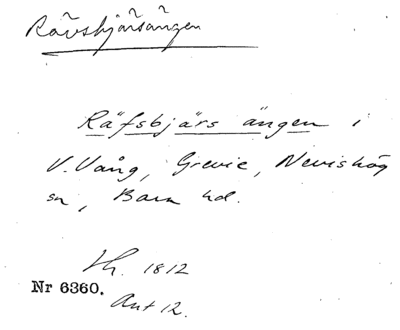 Rävsbjärsängen
Räfsbjärs ängen i
V. Vång, Grevie, Nevishög
sn, Bara hd.
Lh. 1812
Nr 6360.
Ant 12.